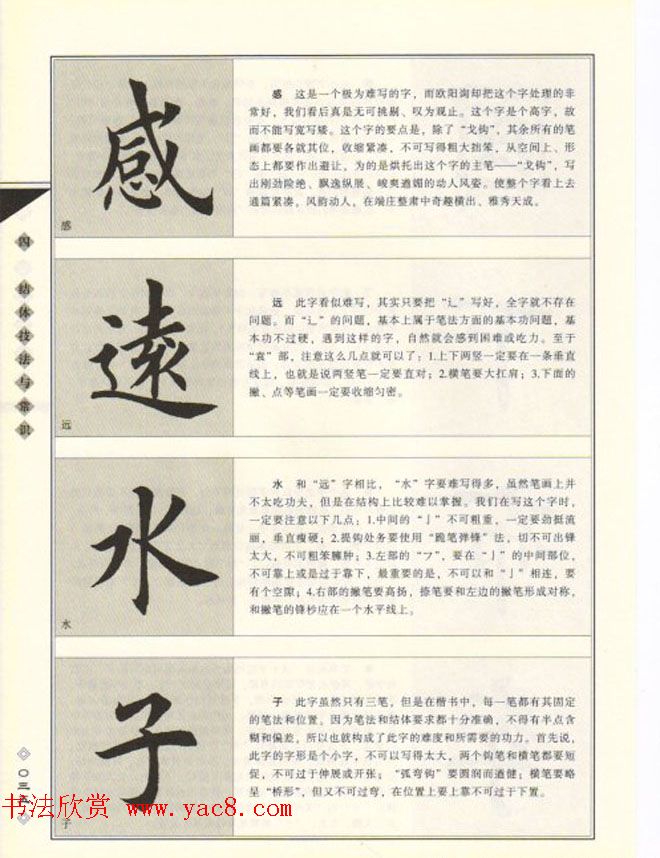 感
感 这是一个极为难写的字，而欧阳询却把这个字处理的非
常好，我们看后真是无可挑剔、叹为观止。这个字是个高字，故
而不能写宽写矮。这个字的要点是，除了“戈钩”，其余所有的笔
画都要各就其位，收缩紧凑，不可写得粗大拙笨，从空间上、形
态上都要作出避让，为的是烘托出这个字的主笔——“戈钩”，写
出刚劲险绝、飘逸纵展、峻爽遒媚的动人风姿。使整个字看上去
通篇紧凑，风韵动人，在端庄整肃中奇趣横出、雅秀天成。
感
四 结体技法与常识
遠
远 此字看似难写，其实只要把“辶”写好，全字就不存在
问题。而“辶”的问题，基本上属于笔法方面的基本功问题，基
本功不过硬，遇到这样的字，自然就会感到困难或吃力。至于
“袁”部，注意这么几点就可以了：1.上下两竖一定要在一条垂直
线上，也就是说两竖笔一定要直对；2.横笔要大扛肩；3.下面的
撇、点等笔画一定要收缩匀密。
远
水
水 和“远”字相比，“水”字要难写得多，虽然笔画上并
不太吃功夫，但是在结构上比较难以掌握。我们在写这个字时，
一定要注意以下几点：1.中间的“亅”不可粗重，一定要劲挺流
丽，垂直瘦硬；2.提钩处务要使用“跪笔弹锋”法，切不可出锋
太大，不可粗笨臃肿；3.左部的“㇇”，要在“亅”的中间部位，
不可靠上或是过于靠下，最重要的是，不可以和“亅”相连，要
有个空隙；4.右部的撇笔要高扬，捺笔要和左边的撇笔形成对称，
和撇笔的锋杪应在一个水平线上。
水
子
子 此字虽然只有三笔，但是在楷书中，每一笔都有其固定
的笔法和位置，因为笔法和结体要求都十分准确，不得有半点含
糊和偏差，所以也就构成了此字的难度和所需要的功力。首先说，
此字的字形是个小字，不可以写得太大，两个钩笔和横笔都要短
促，不可过于伸展或开张；“弧弯钩”要圆润而遒健；横笔要略
呈“桥形”，但又不可过弯，在位置上要上靠不可过于下置。
子
〇三
书法欣赏 www.yac8.com